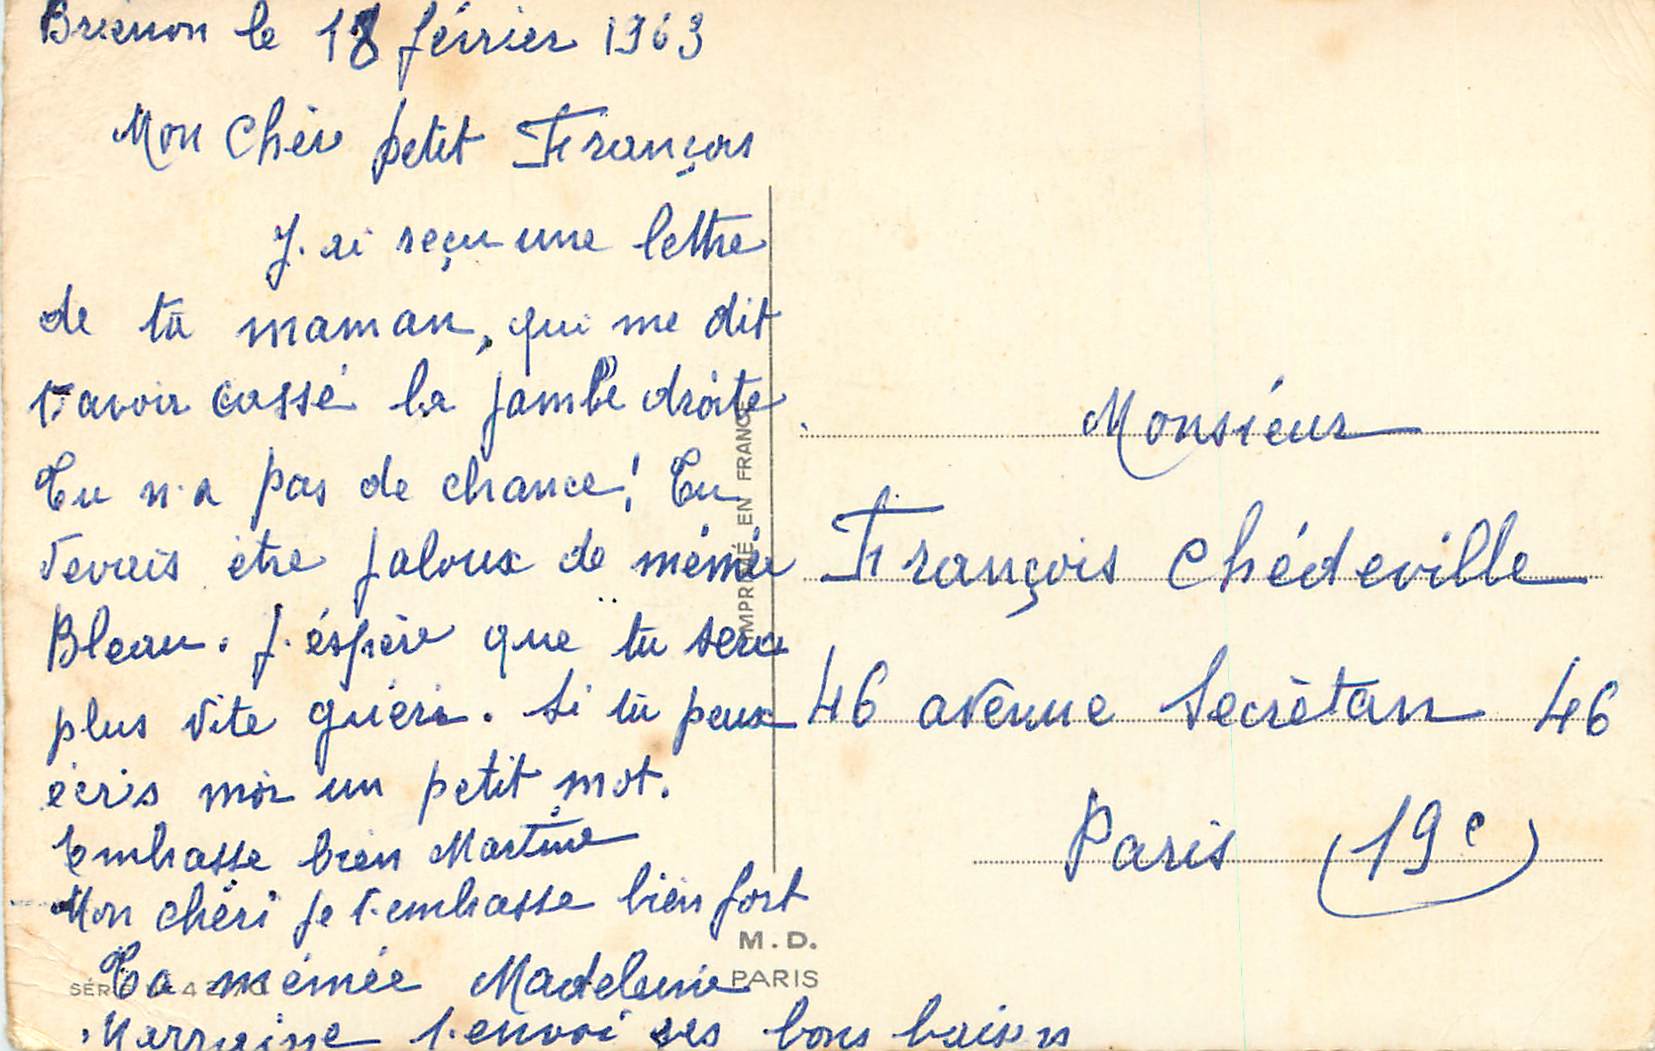 Brienon le 18 février 1963
Mon Chèr petit François
J. ai reçu une lettre
de ta maman, qui me dit
t'avoir cassé la jambe droite
Tu n'a pas de chance! Tu
devais être jaloux de mémée
Bleau. J. éspère que tu sera
plus vite guéri. Si tu peux
écris moi un petit mot.
Embrasse bien Martine
Mon chéri je t.embrasse bien fort
Ta mémée Madeleine
Marraine t.envoi ses bons baisers
IMPRIMÉ EN FRANCE
M.D.
PARIS
SÉRIE
Monsieur
François Chédeville
46 avenue Secrètan 46
Paris (19e)